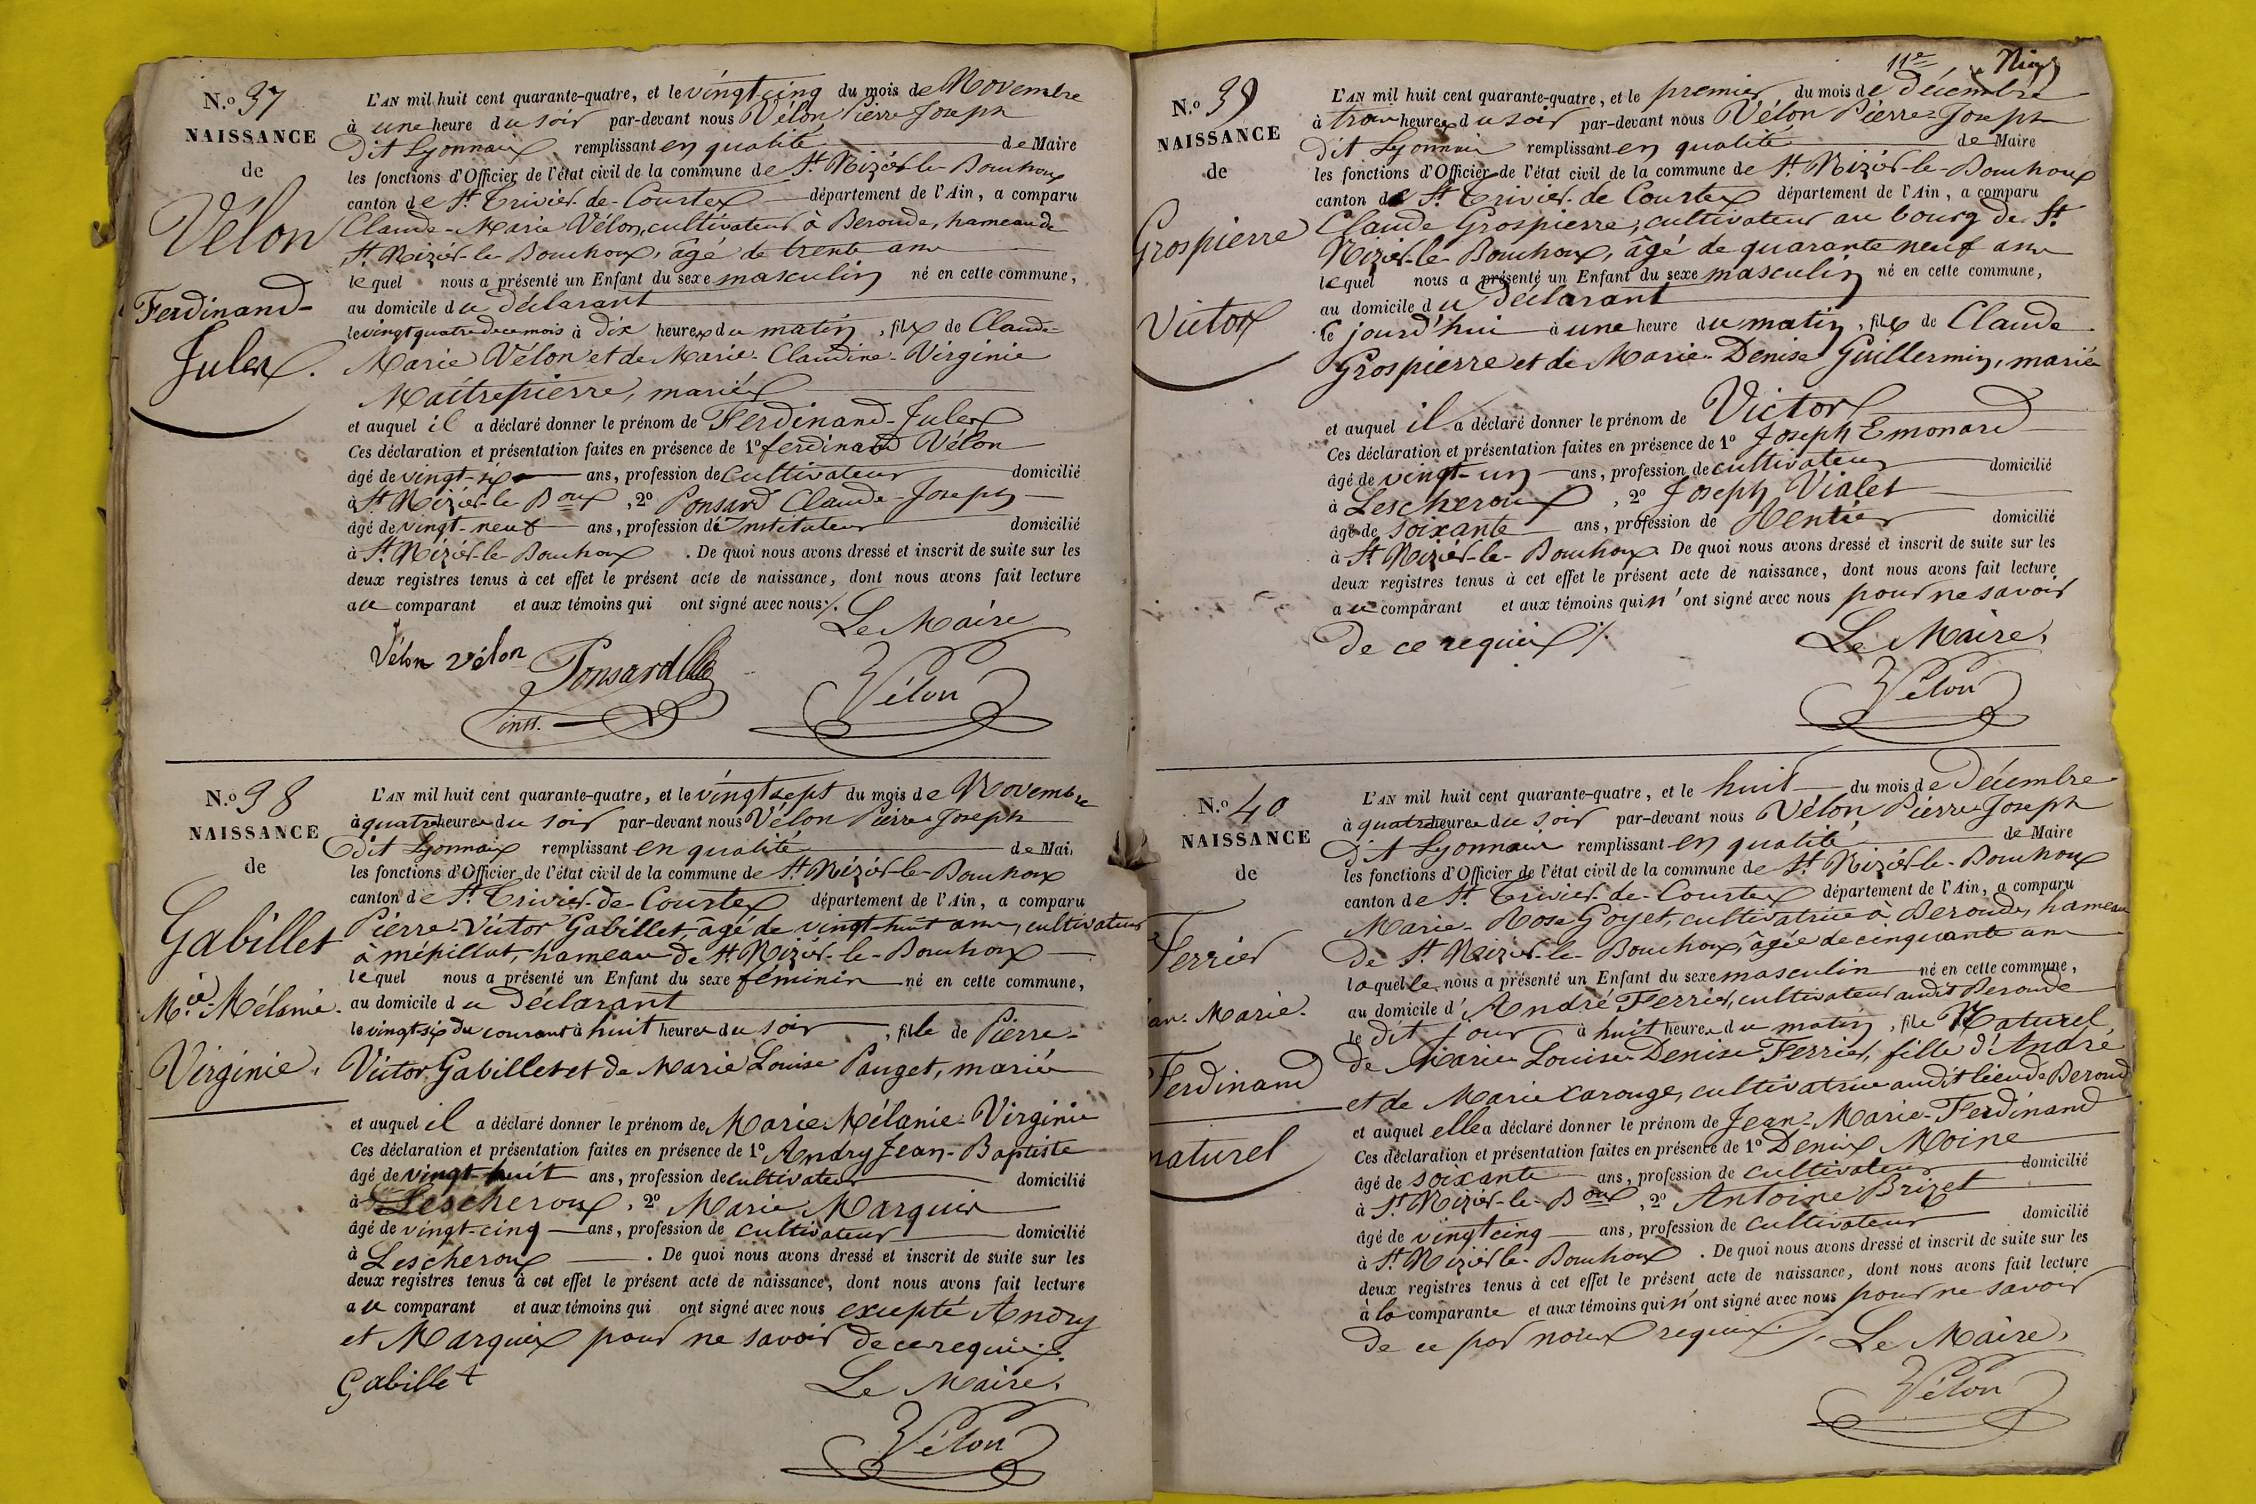 N.o 37
NAISSANCE
de
Vélon
Ferdinand-
Jules.
L'AN mil huit cent quarante-quatre, et le vingt cinq du mois de Novembre
à une heure du soir par-devant nous Vélon Pierre Joseph
dit Lyonnais remplissant en qualité de Maire
les fonctions d'Officier de l'état civil de la commune de St. Nizier-le-Bouchoux
canton de St. Trivier-de-Courtes département de l'Ain, a comparu
Claude-Marie Vélon, cultivateur à Beroude, hameau de
St. Nizier-le-Bouchoux, âgé de trente ans
lequel nous a présenté un Enfant du sexe masculin né en cette commune,
au domicile du déclarant
le vingt quatre de ce mois à dix heures du matin, fils de Claude-
Marie Vélon et de Marie-Claudine-Virginie
Maîtrepierre, mariés
et auquel il a déclaré donner le prénom de Ferdinand-Jules
Ces déclaration et présentation faites en présence de 1o ferdinand Vélon
âgé de vingt-six ans, profession de cultivateur domicilié
à St. Nizier-le-Boux, 2o Ponsard Claude-Joseph
âgé de vingt-neuf ans, profession d'Instituteur domicilié
à St. Nizier-le-Bouchoux. De quoi nous avons dressé et inscrit de suite sur les
deux registres tenus à cet effet le présent acte de naissance, dont nous avons fait lecture
au comparant et aux témoins qui ont signé avec nous ./.
Le Maire
Vélon vélon Ponsard
inst. Vélon
N.o 38
NAISSANCE
de
Gabillet
Mie. Mélanie.
Virginie.
L'AN mil huit cent quarante-quatre, et le vingt sept du mois de Novembre
à quatre heures du soir par-devant nous Vélon Pierre Joseph
dit Lyonnais remplissant en qualité de Mai
les fonctions d'Officier de l'état civil de la commune de St. Nizier-le-Bouchoux
canton de St. Trivier-de-Courtes département de l'Ain, a comparu
Pierre-Victor Gabillet âgé de vingt-huit ans, cultivateur
à mépillat, hameau de St. Nizier-le-Bouchoux
lequel nous a présenté un Enfant du sexe féminin né en cette commune,
au domicile du déclarant
le vingt-six du courant à huit heures du soir, fille de Pierre-
Victor Gabillet et de Marie Louise Pauget, mariés
et auquel il a déclaré donner le prénom de Marie Mélanie-Virginie
Ces déclaration et présentation faites en présence de 1o Andry Jean-Baptiste
âgé de vingt-huit ans, profession de cultivateur domicilié
à Lescheroux, 2o Marie Marquis
âgé de vingt-cinq ans, profession de cultivateur domicilié
à Lescheroux. De quoi nous avons dressé et inscrit de suite sur les
deux registres tenus à cet effet le présent acte de naissance, dont nous avons fait lecture
au comparant et aux témoins qui ont signé avec nous excepté Andry
et Marquis pour ne savoir de ce requis ./.
Gabillet Le Maire.
Vélon
11e
N.o 39
NAISSANCE
de
Grospierre
Victor
L'AN mil huit cent quarante-quatre, et le premier du mois de décembre
à trois heures du soir par-devant nous Vélon Pierre-Joseph
dit Lyonnais remplissant en qualité de Maire
les fonctions d'Officier de l'état civil de la commune de St. Nizier-le-Bouchoux
canton de St. Trivier-de-Courtes département de l'Ain, a comparu
Claude Grospierre, cultivateur au bourg de St.
Nizier-le-Bouchoux, âgé de quarante neuf ans
lequel nous a présenté un Enfant du sexe masculin né en cette commune,
au domicile du déclarant
ce jourd'hui à une heure du matin, fils de Claude
Grospierre et de Marie-Denise Guillermin, mariés
et auquel il a déclaré donner le prénom de Victor
Ces déclaration et présentation faites en présence de 1o Joseph Emonard
âgé de vingt-un ans, profession de cultivateur domicilié
à Lescheroux, 2o Joseph Vialet
âgé de soixante ans, profession de Rentier domicilié
à St. Nizier-le-Bouchoux. De quoi nous avons dressé et inscrit de suite sur les
deux registres tenus à cet effet le présent acte de naissance, dont nous avons fait lecture
au comparant et aux témoins qui n'ont signé avec nous pour ne savoir
de ce requis ./. Le Maire.
Vélon
N.o 40
NAISSANCE
de
Ferrier
an-Marie.
Ferdinand
naturel
L'AN mil huit cent quarante-quatre, et le huit du mois de Décembre
à quatre heures du soir par-devant nous Vélon Pierre Joseph
dit Lyonnais remplissant en qualité de Maire
les fonctions d'Officier de l'état civil de la commune de St. Nizier-le-Bouchoux
canton de St. Trivier-de-Courtes département de l'Ain, a comparu
Marie-Rose Goyet, cultivatrice à Beroude, hameau
de St. Nizier-le-Bouchoux, âgée de cinquante ans
laquelle nous a présenté un Enfant du sexe masculin né en cette commune,
au domicile d'André Ferrier, cultivateur audit Beroude
le dit jour à huit heures du matin, fils Naturel,
de Marie Louise Denise Ferrier, fille d'André
et de Marie Carouge, cultivatrice audit lieu de Beroud
et auquel elle a déclaré donner le prénom de Jean-Marie-Ferdinand
Ces déclaration et présentation faites en présence de 1o Denis Moine
âgé de soixante ans, profession de cultivateur domicilié
à St. Nizier-le-Boux, 2o Antoine Brizet
âgé de vingt cinq ans, profession de cultivateur domicilié
à St. Nizier-le-Bouchoux. De quoi nous avons dressé et inscrit de suite sur les
deux registres tenus à cet effet le présent acte de naissance, dont nous avons fait lecture
à la comparante et aux témoins qui n'ont signé avec nous pour ne savoir
de ce par nous requis ./. Le Maire.
Vélon